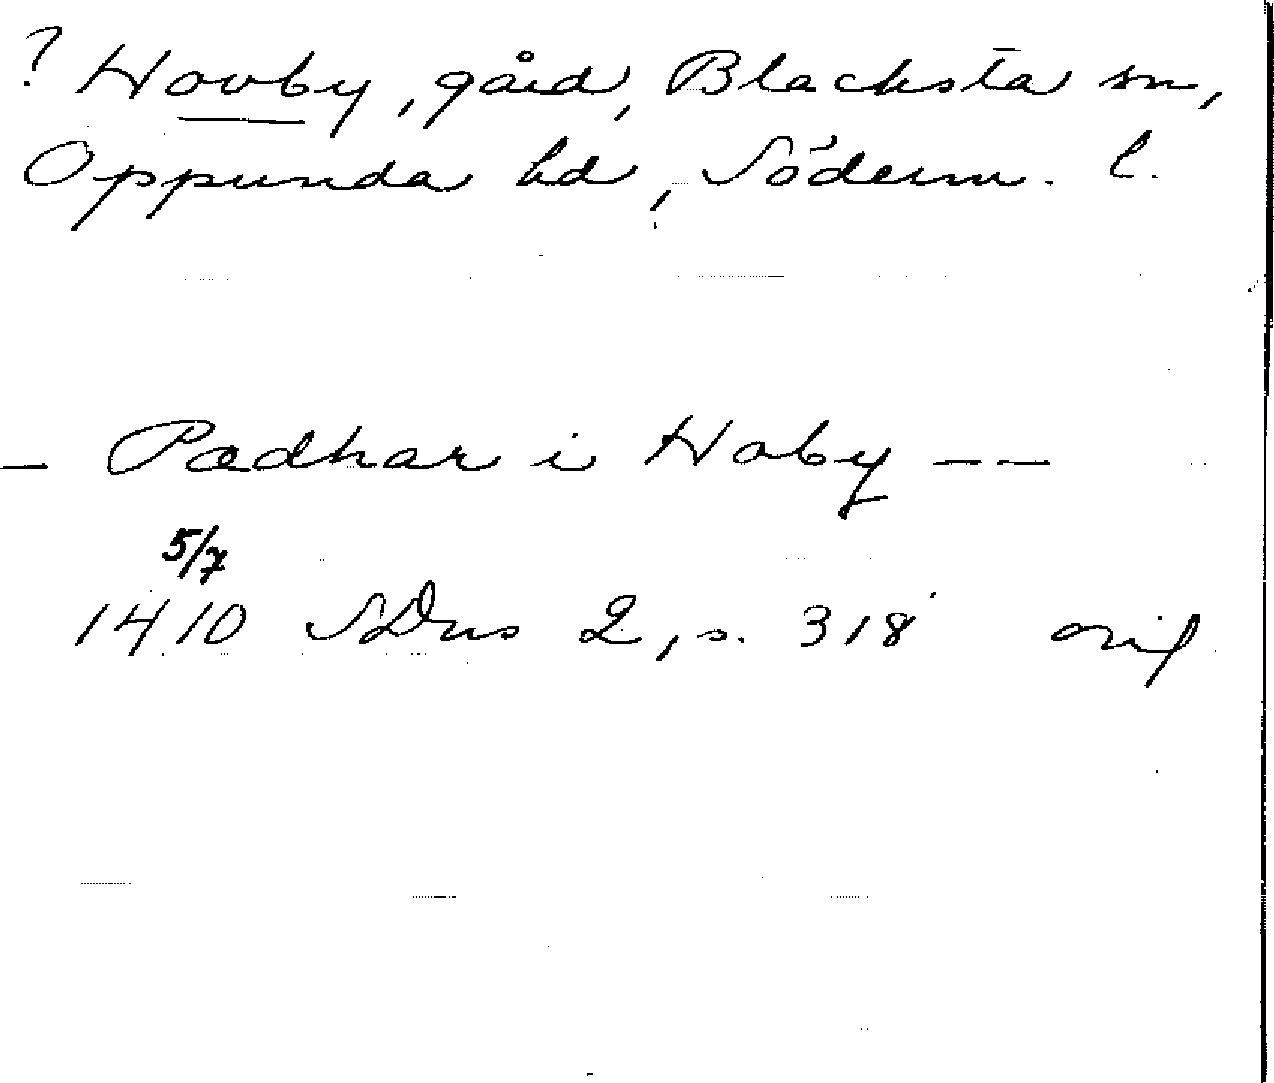 ? Hovby, gård, Blacksta sn,
Oppunda hd, Söderm. l.
— Pædhar i Haby — —
5/7
1410 SDns 2, s. 318 orig